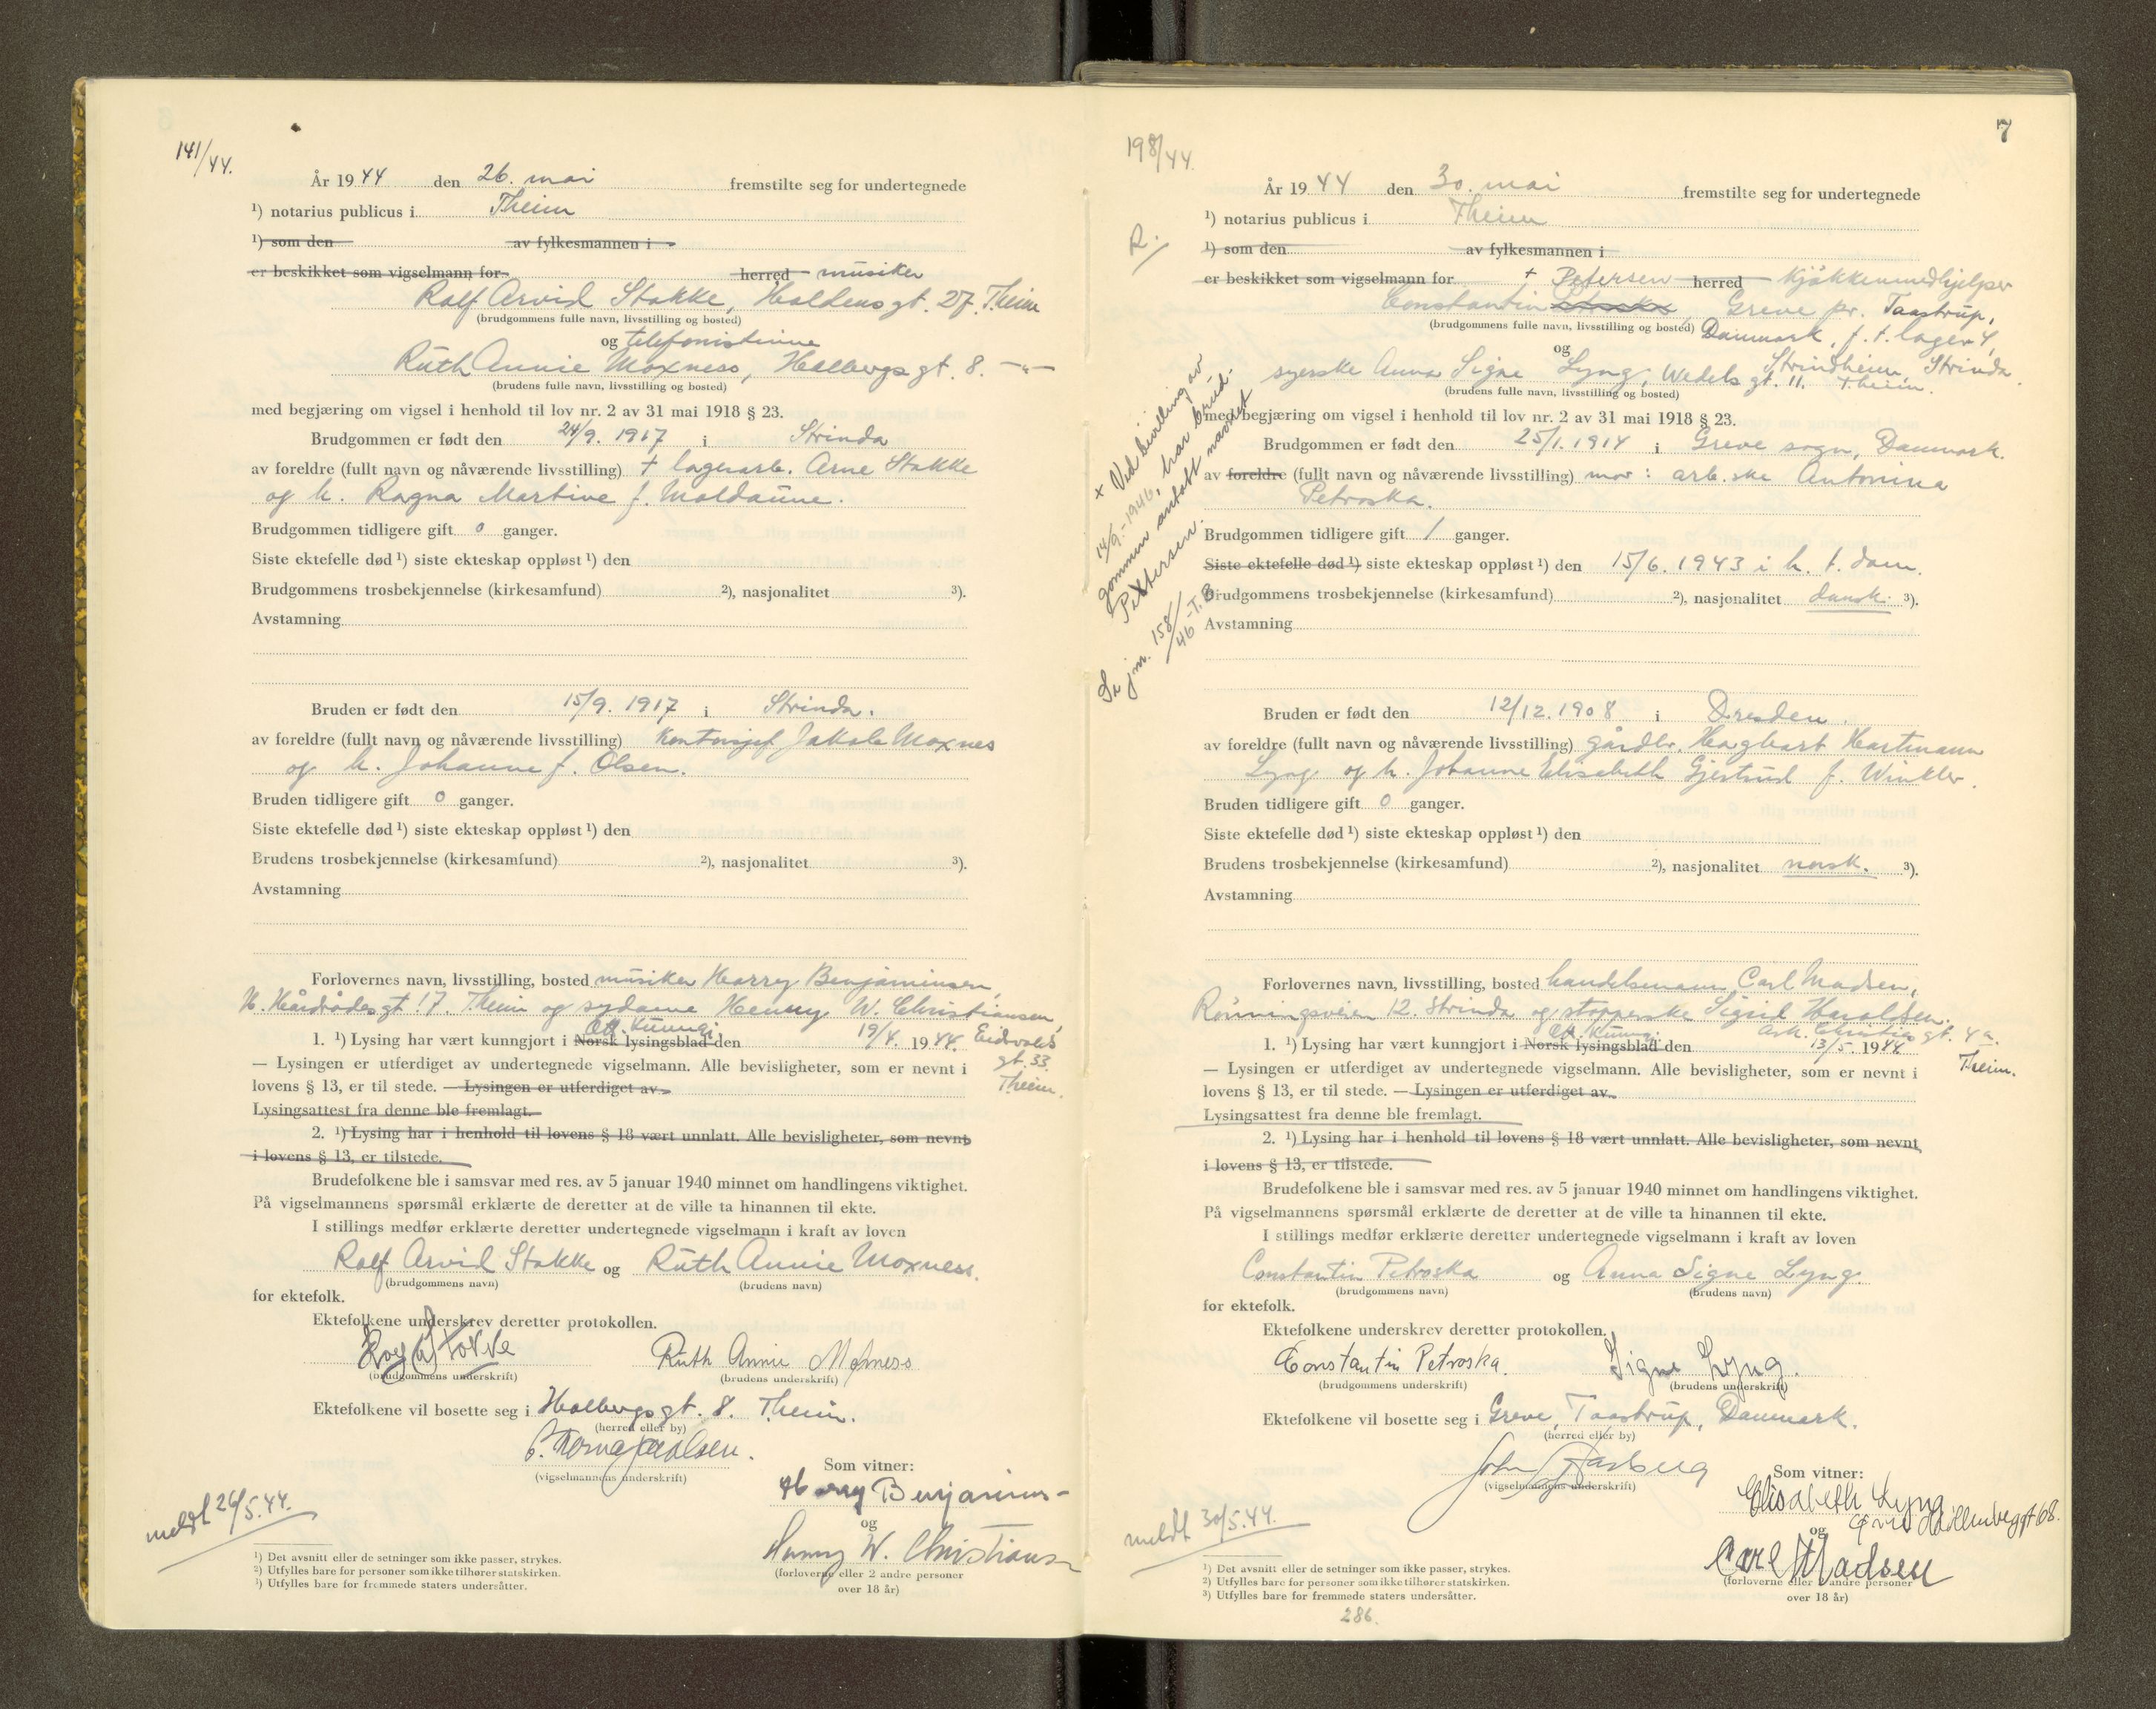 141/44.
År 1944 den 26. mai fremstilte seg for undertegnede
¹) notarius publicus i Theim
¹) som den av fylkesmannen i
er beskikket som vigselmann for herred musiker
Rolf Arvid Stokke, Holdensgt. 27. Theim
(brudgommens fulle navn, livsstilling og bosted)
og telefonistinne
Ruth Annie Moxness, Holbergsgt. 8. —"—
(brudens fulle navn, livsstilling og bosted)
med begjæring om vigsel i henhold til lov nr. 2 av 31 mai 1918 § 23.
Brudgommen er født den 24/9. 1917 i Strinda
av foreldre (fullt navn og nåværende livsstilling) + lagerarb. Arne Stokke
og h. Ragna Martine f. Moldaune.
Brudgommen tidligere gift 0 ganger.
Siste ektefelle død ¹) siste ekteskap oppløst ¹) den
Brudgommens trosbekjennelse (kirkesamfund) ²), nasjonalitet ³).
Avstamning
Bruden er født den 15/9. 1917 i Strinda.
av foreldre (fullt navn og nåværende livsstilling) Kontorsjef Jakob Moxnes
og h. Johanne f. Olsen.
Bruden tidligere gift 0 ganger.
Siste ektefelle død ¹) siste ekteskap oppløst ¹) den
Brudens trosbekjennelse (kirkesamfund) ²), nasjonalitet ³).
Avstamning
Forlovernes navn, livsstilling, bosted musiker Harry Benjaminsen,
H. Hårdrådesgt. 17. Theim og sydame Henny W. Christiansen,
Eidsvolds
gt. 33.
Theim.
1. ¹) Lysing har vært kunngjort i Norsk lysingsblad Off. Kunngj. den 19/4. 1944.
— Lysingen er utferdiget av undertegnede vigselmann. Alle bevisligheter, som er nevnt i
lovens § 13, er til stede. — Lysingen er utferdiget av
Lysingsattest fra denne ble fremlagt.
2. ¹) Lysing har i henhold til lovens § 18 vært unnlatt. Alle bevisligheter, som nevnt
i lovens § 13, er tilstede.
Brudefolkene ble i samsvar med res. av 5 januar 1940 minnet om handlingens viktighet.
På vigselmannens spørsmål erklærte de deretter at de ville ta hinannen til ekte.
I stillings medfør erklærte deretter undertegnede vigselmann i kraft av loven
Rolf Arvid Stokke og Ruth Annie Moxness.
(brudgommens navn) (brudens navn)
for ektefolk.
Ektefolkene underskrev deretter protokollen.
Ruth Annie Moxness
(brudgommens underskrift) (brudens underskrift)
Ektefolkene vil bosette seg i Holbergsgt. 8. Theim.
(herred eller by)
(vigselmannens underskrift)
Som vitner:
Harry Benjamins-
og
Henny W. Christiansen
(forloverne eller 2 andre personer
over 18 år)
meldt 26/5.44.
¹) Det avsnitt eller de setninger som ikke passer, strykes.
²) Utfylles bare for personer som ikke tilhører statskirken.
³) Utfylles bare for fremmede staters undersåtter.
7
198/44.
R.
År 1944 den 30. mai fremstilte seg for undertegnede
¹) notarius publicus i Theim
¹) som den av fylkesmannen i
er beskikket som vigselmann for + Petersen herred kjøkkenmedhjelper
Constantin Petroska, Greve pr. Taastrup,
(brudgommens fulle navn, livsstilling og bosted) Danmark, f. t. lager 4,
og Strindheim, Strinda
syerske Anna Signe Lyng, Wedels gt. 11. Theim.
(brudens fulle navn, livsstilling og bosted)
med begjæring om vigsel i henhold til lov nr. 2 av 31 mai 1918 § 23.
Brudgommen er født den 25/1. 1914 i Greve sogn, Danmark.
av foreldre (fullt navn og nåværende livsstilling) mor: arb.ske Antonina
Petroska.
Brudgommen tidligere gift 1 ganger.
Siste ektefelle død ¹) siste ekteskap oppløst ¹) den 15/6. 1943 i h. t. dom.
Brudgommens trosbekjennelse (kirkesamfund) ²), nasjonalitet dansk. ³).
Avstamning
+ Ved bevilling av
14/9.-1946, har brud-
gommen antatt navnet
Petersen.
Se jnr. 158/46-T.B.
Bruden er født den 12/12. 1908 i Dresden.
av foreldre (fullt navn og nåværende livsstilling) gårdbr. Hagbart Hartmann
Lyng og h. Johanne Elisabeth Gjertrud f. Winkler.
Bruden tidligere gift 0 ganger.
Siste ektefelle død ¹) siste ekteskap oppløst ¹) den
Brudens trosbekjennelse (kirkesamfund) ²), nasjonalitet norsk. ³).
Avstamning
Forlovernes navn, livsstilling, bosted handelsmann Carl Madsen,
Rönningsveien 12. Strinda og stopperske Sigrid Haraldsen.
Ark. Christies gt. 4a.
Theim.
1. ¹) Lysing har vært kunngjort i Norsk lysingsblad Off. Kunngj. den 13/5. 1944
— Lysingen er utferdiget av undertegnede vigselmann. Alle bevisligheter, som er nevnt i
lovens § 13, er til stede. — Lysingen er utferdiget av
Lysingsattest fra denne ble fremlagt.
2. ¹) Lysing har i henhold til lovens § 18 vært unnlatt. Alle bevisligheter, som nevnt
i lovens § 13, er tilstede.
Brudefolkene ble i samsvar med res. av 5 januar 1940 minnet om handlingens viktighet.
På vigselmannens spørsmål erklærte de deretter at de ville ta hinannen til ekte.
I stillings medfør erklærte deretter undertegnede vigselmann i kraft av loven
Constantin Petroska og Anna Signe Lyng.
(brudgommens navn) (brudens navn)
for ektefolk.
Ektefolkene underskrev deretter protokollen.
Constantin Petroska. Signe Lyng.
(brudgommens underskrift) (brudens underskrift)
Ektefolkene vil bosette seg i Greve, Taastrup, Danmark.
(herred eller by)
John Aasberg
(vigselmannens underskrift)
Som vitner:
Elisabeth Lyng
og
Carl Madsen
(forloverne eller 2 andre personer
over 18 år)
meldt 30/5.44.
¹) Det avsnitt eller de setninger som ikke passer, strykes.
²) Utfylles bare for personer som ikke tilhører statskirken.
³) Utfylles bare for fremmede staters undersåtter.
286.